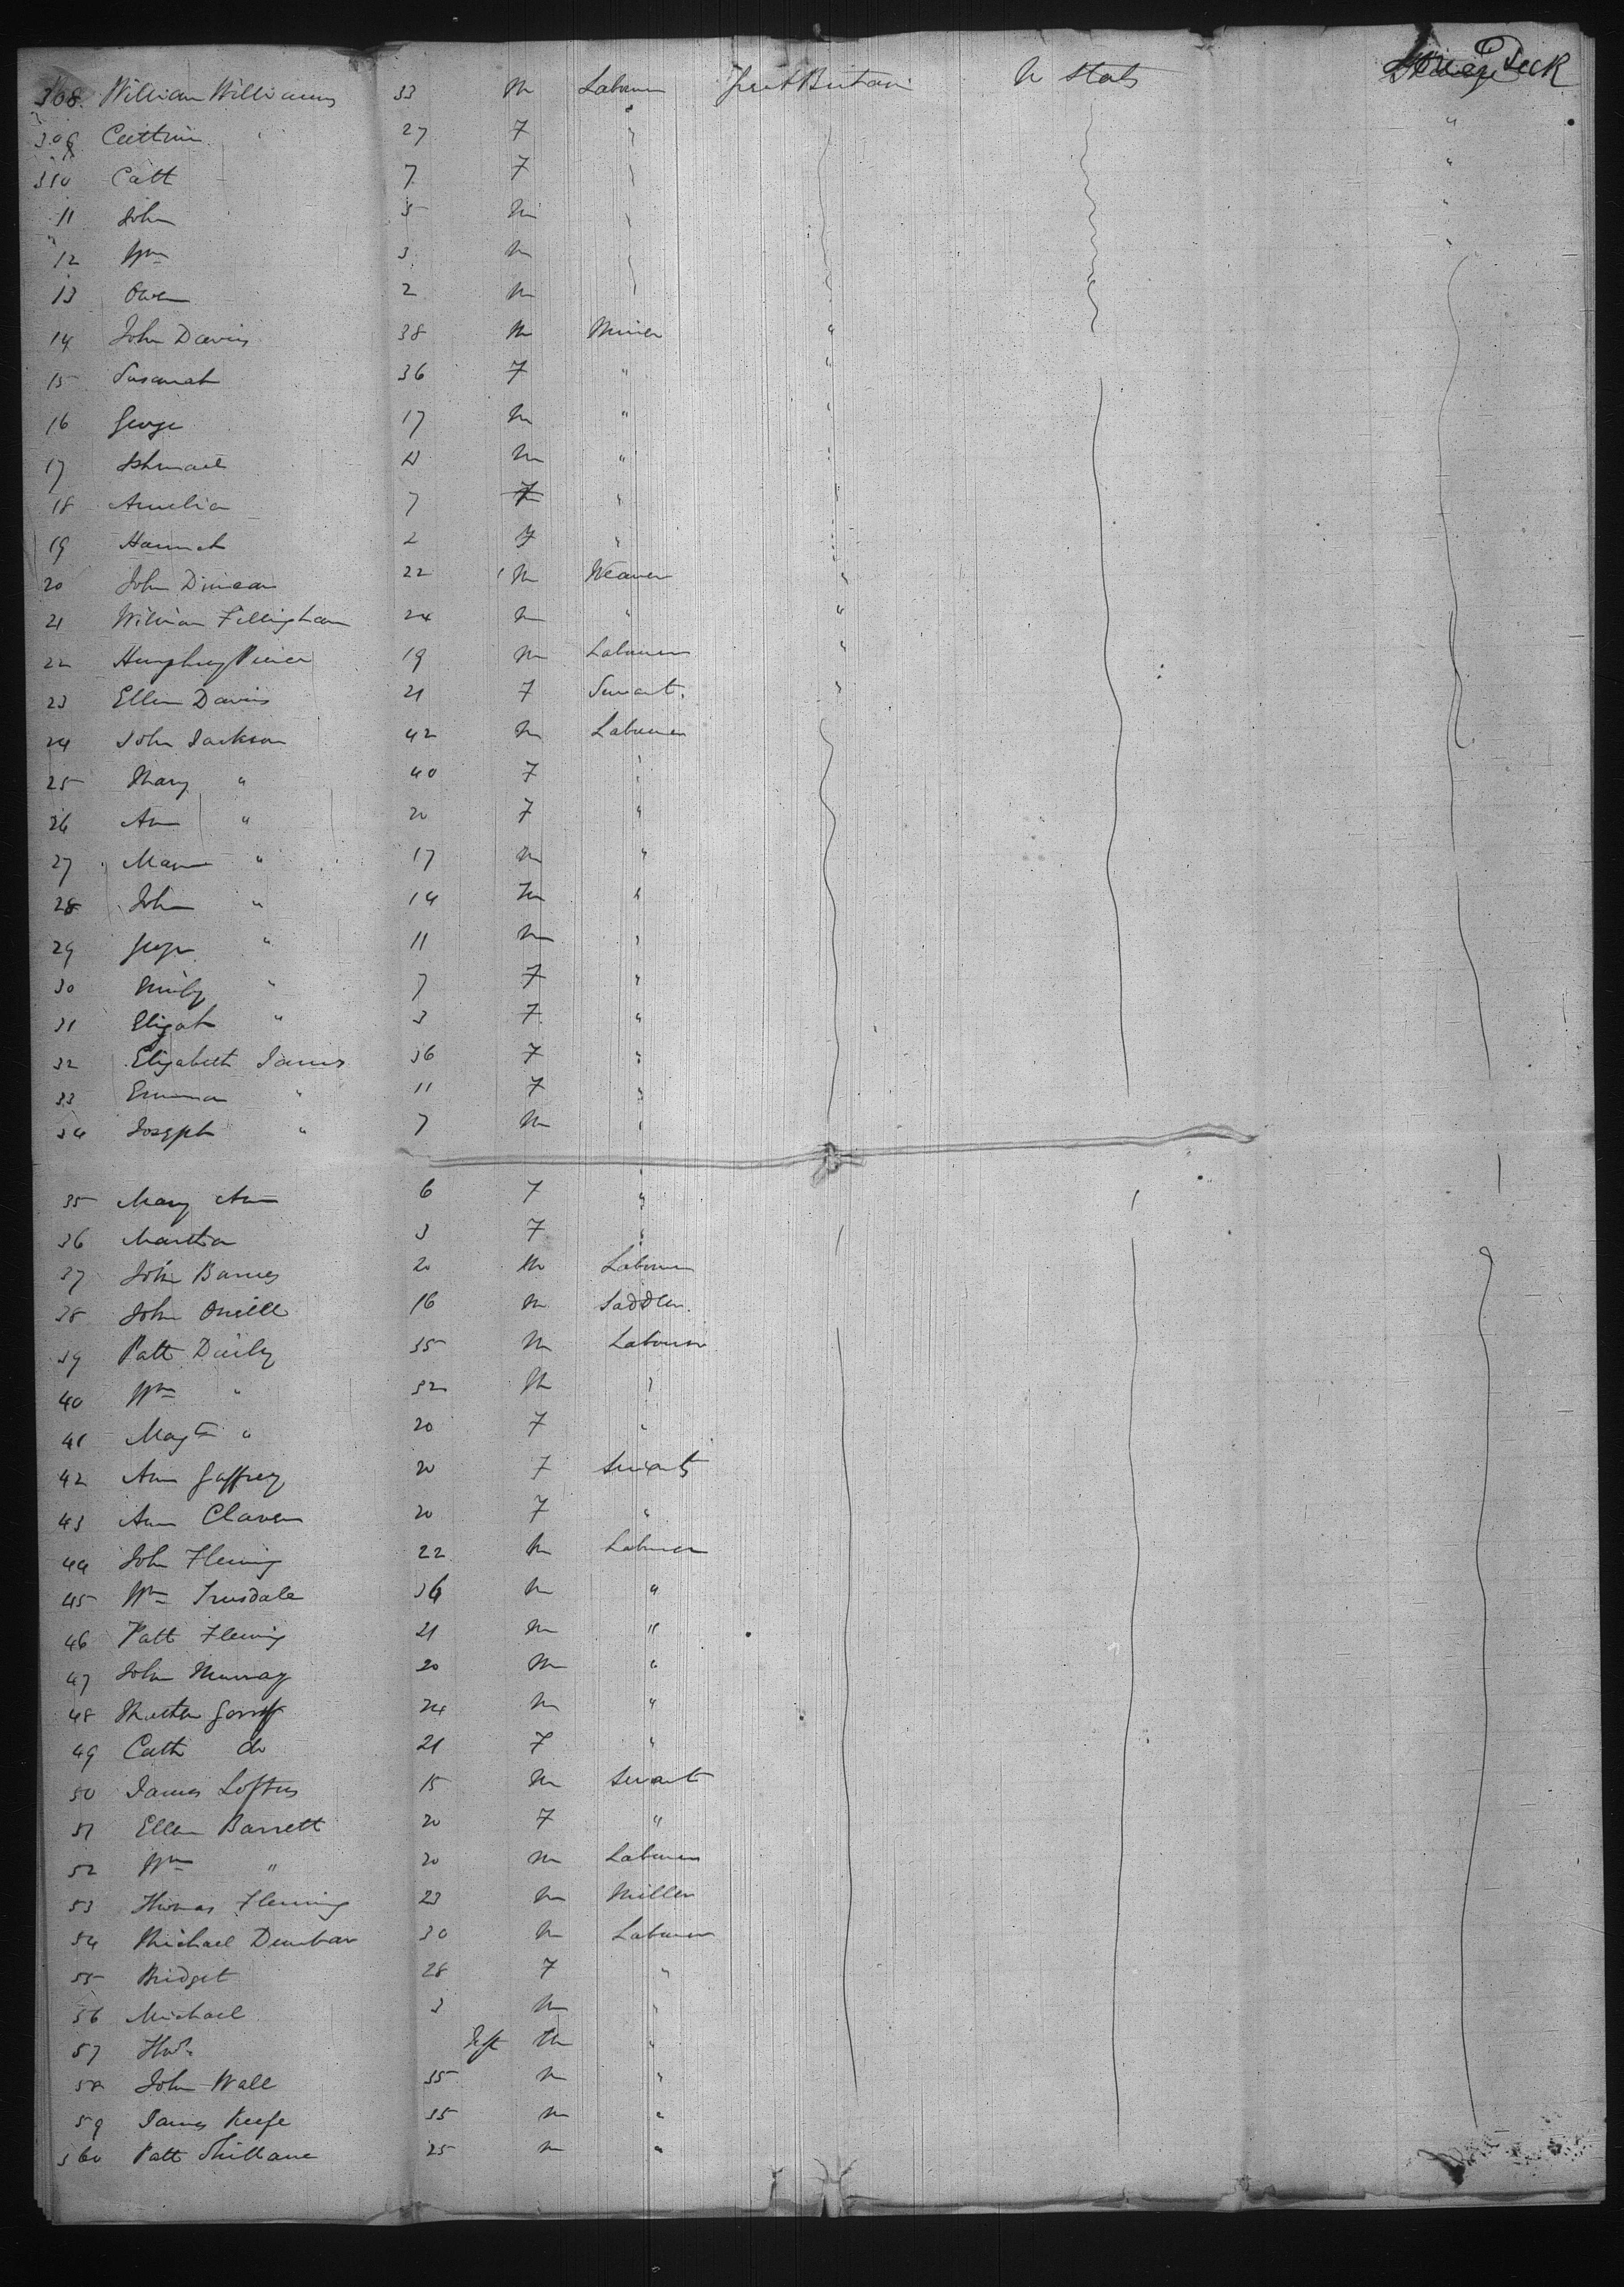 308. William Williams 33 M Labourer Great Britain U States Steerage Deck
309 Cattrin " 27 F " "
310 Catt 7 F " "
11 John 5 M "
12 Wm 3 M "
13 Owen 2 M
14 John Davis 38 M Miner "
15 Susanah 36 F " "
16 George 17 M " "
17 Ishmael M "
18 Amelia 7 F "
19 Hannah 2 F "
20 John Duncan 22 M Weaver "
21 William Fillingham 24 M " "
22 Humphrey 19 M Labourer "
23 Ellen Davis 21 F Servant. "
24 John Jackson 42 M Labourer
25 Mary " 40 F "
26 Ann " 20 F "
27 " 17 M "
28 John " 14 M "
29 George " 11 M "
30 Emily " 7 F "
31 Elizah " 3 F "
32 Elizabeth James 36 F "
33 Emma " 11 F "
34 Joseph " 7 M "
35 Mary Ann 6 F "
36 Martha 3 F "
37 John Barnes 20 M Labourer
38 John Oneill 16 M Saddler.
39 Patt Daily 35 M Labourer
40 Wm " 32 M "
41 Magt " 20 F "
42 Ann Gaffrey 20 F Servants
43 Ann Claven 20 F "
44 John Fleming 22 M Labourer
45 Wm Trusdale 34 M "
46 Patt Fleming 21 M "
47 John Murray 20 M "
48 24 M "
49 Cath do 21 F "
50 James Loftus 15 M Servant
51 Ellen Barrett 20 F "
52 Wm " 20 M Labourer
53 Thomas Fleming 23 M Miller
54 Michael Dunbar 30 M Labourer
55 Bridget 28 F "
56 Michael 3 M "
57 Thos. Inft M "
58 John Wall 35 M "
59 James Keefe 35 M "
360 Patt 25 M "